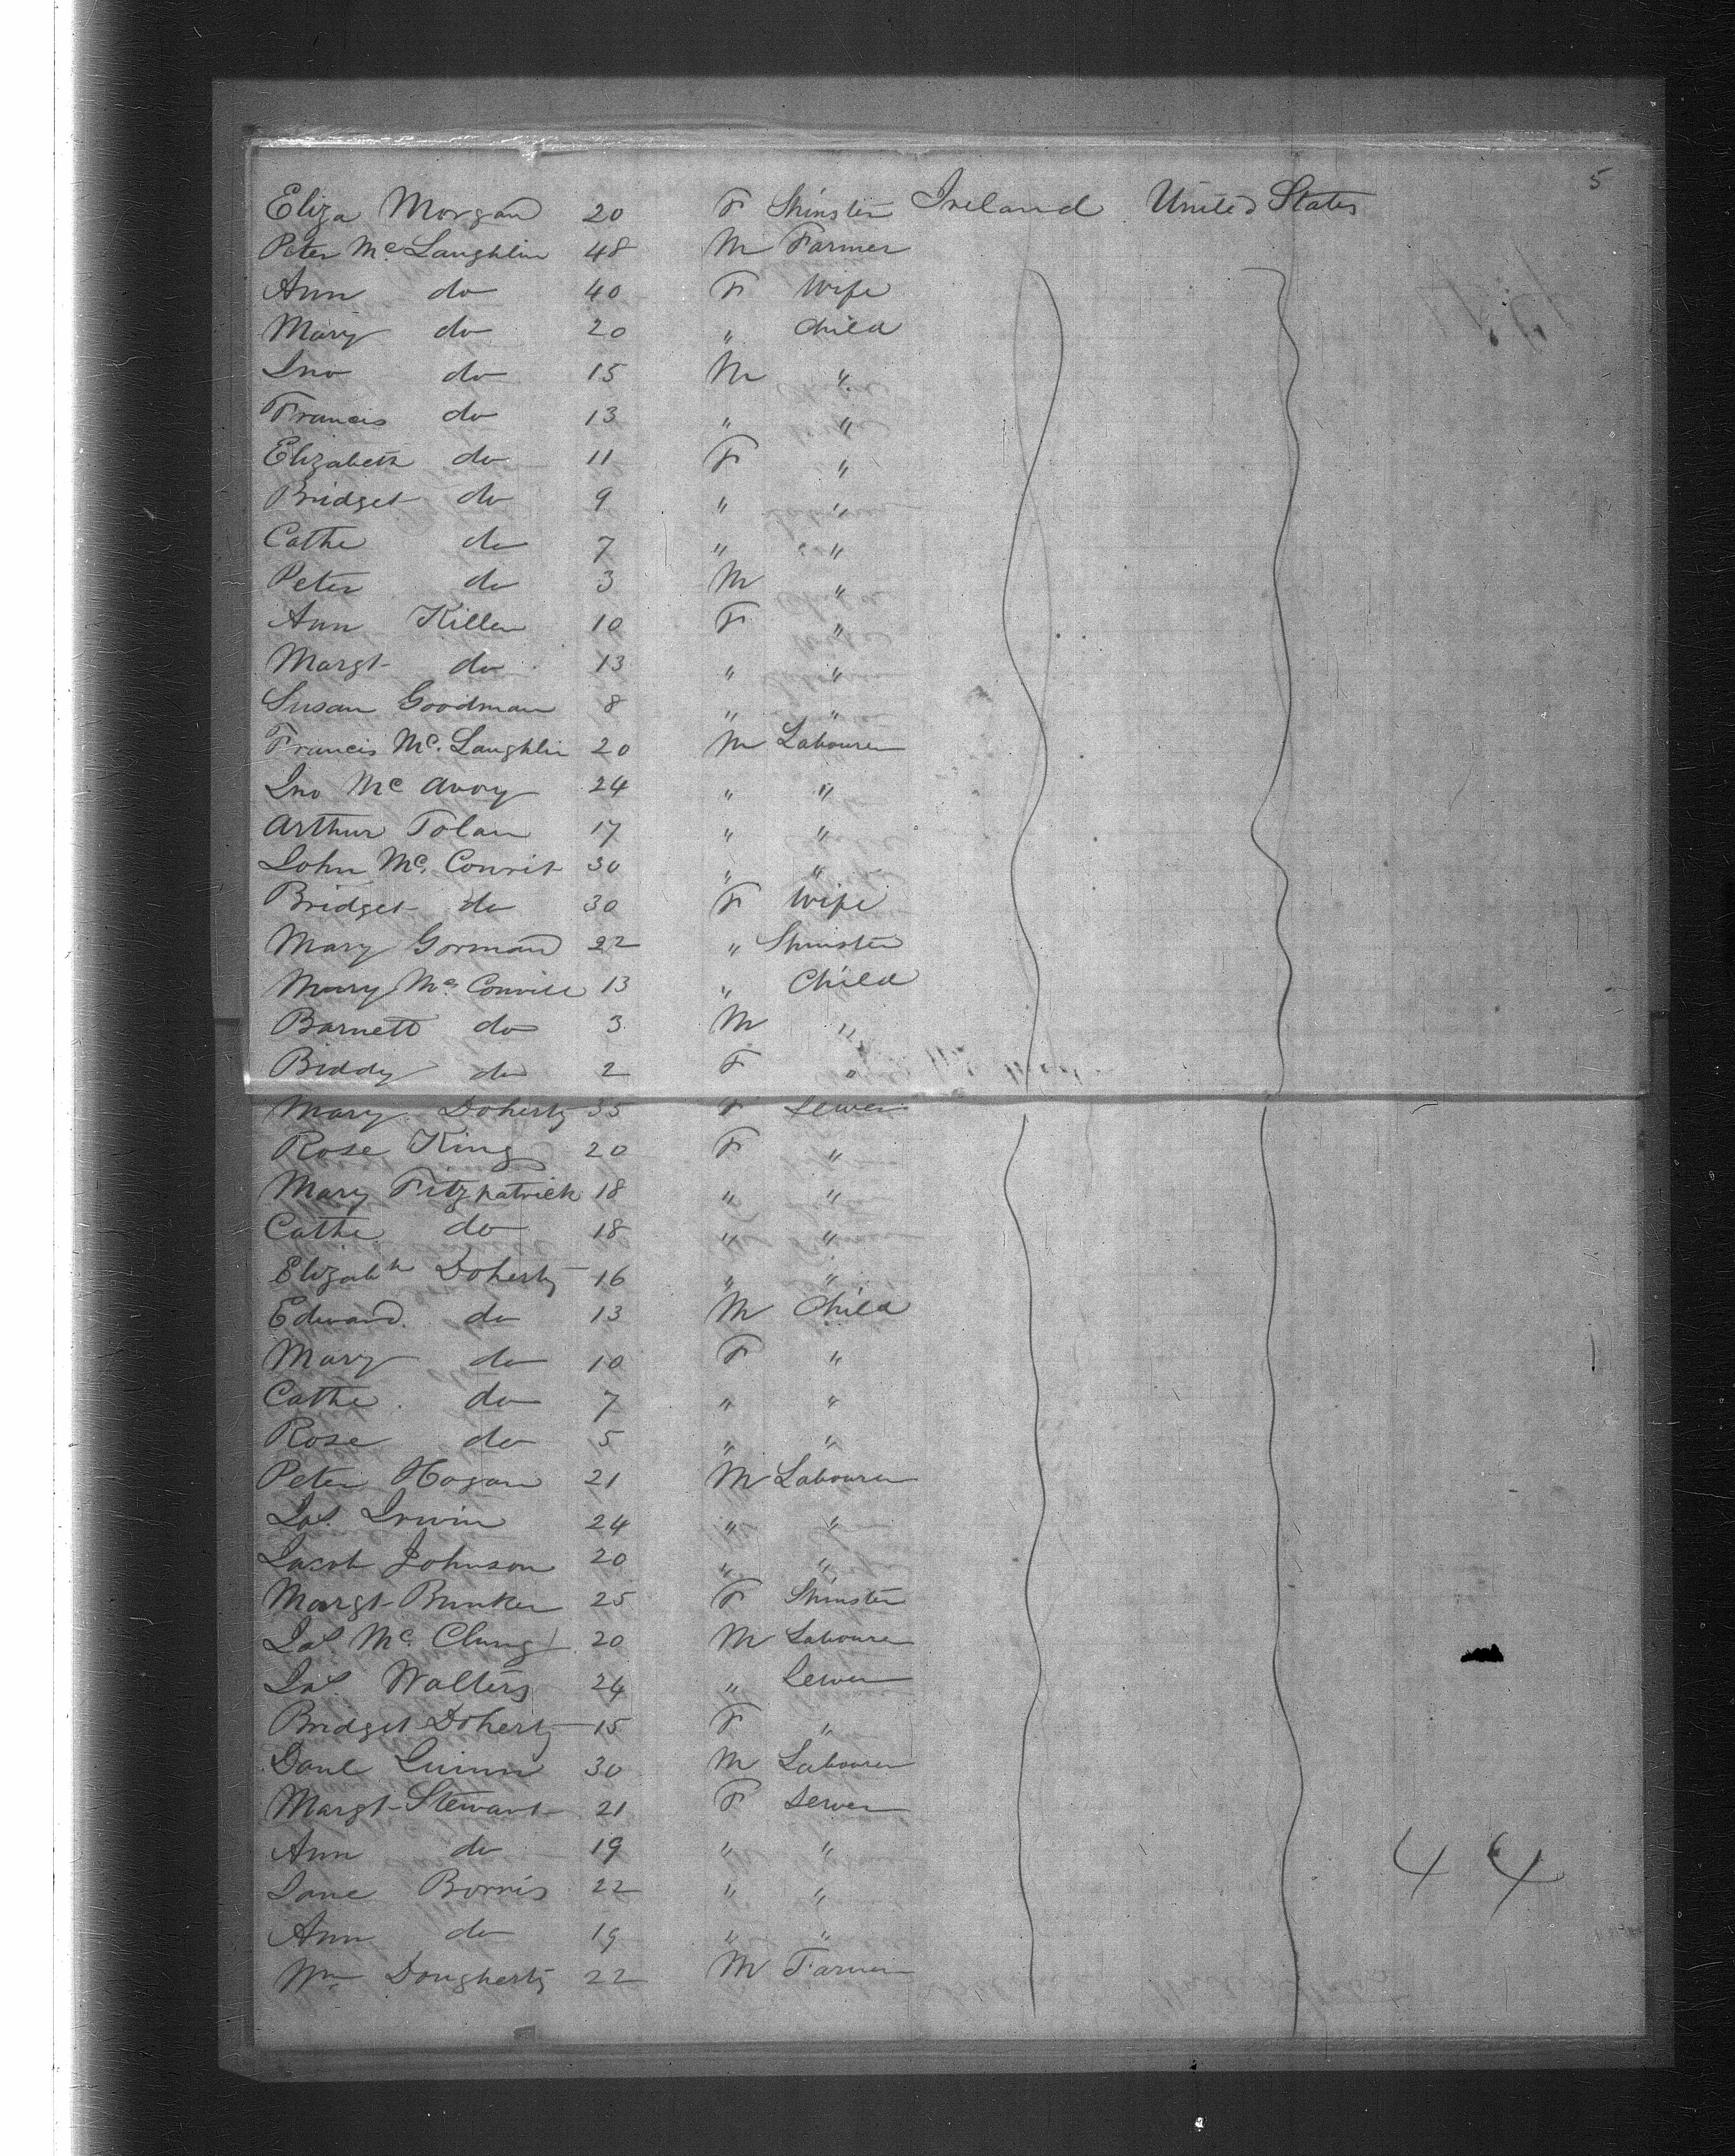 5
Eliza Morgan 20 F Spinster Ireland United States
Peter Mc Laughlin 48 M Farmer
Ann do 40 F Wife
Mary do 20 " Child
Jno do 15 M "
Francis do 13 " "
Elizabeth do 11 F "
Bridget do 9 " "
Cathe do 7 " "
Peter do 3 M "
Ann Killen 10 F "
Margt do 13 " "
Susan Goodman 8 " "
Francis Mc. Laughlin 20 M Labourer
Jno Mc Avoy 24 " "
Arthur Tolan 17 " "
John Mc. 30 " "
Bridget do 30 F Wife
Mary Gorman 22 " Spinster
Mary Mc 13 " Child
Barnett do 3 M "
Biddy do 2 F "
Mary Doherty 35 F Sewer
Rose King 20 F "
Mary Fitzpatrick 18 " "
Cathe do 18 " "
Elizabth Doherty 16 " "
Edward do 13 M Child
Mary do 10 F "
Cathe. do 7 " "
Rose do 5 " "
Peter Hogan 21 M Labourer
Jas. Irwin 24 " "
Jacob Johnson 20 " "
Margt Bunker 25 F Spinster
Jas Mc. Clung 20 M Labourer
Jas Walters 24 " Sewer
Bridget Doherty 15 F "
Danl Quinn 30 M Labourer
Margt Stewart 21 F Sewer
Ann do 19 " "
Jane 22 " "
Ann do 19 " "
Wm Dougherty 22 M Farmer
44